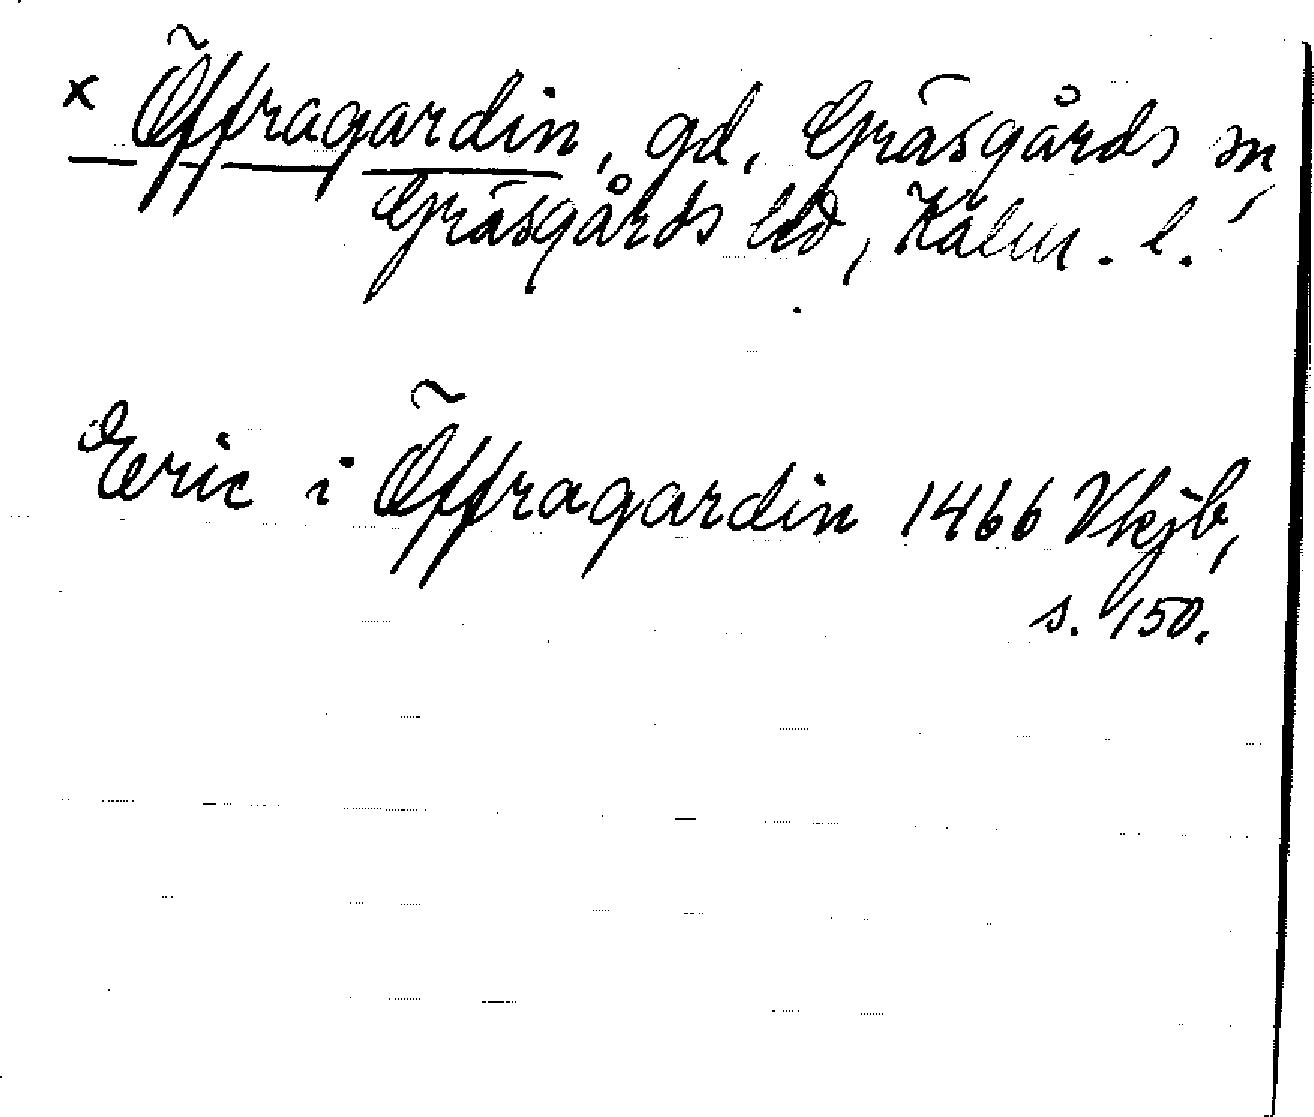 x Öffragardin, gd, Gräsgårds sn,
Gräsgårds hd, Kalm. l.
Eric i Öffragardin 1466 Vkjb,
s. 150.